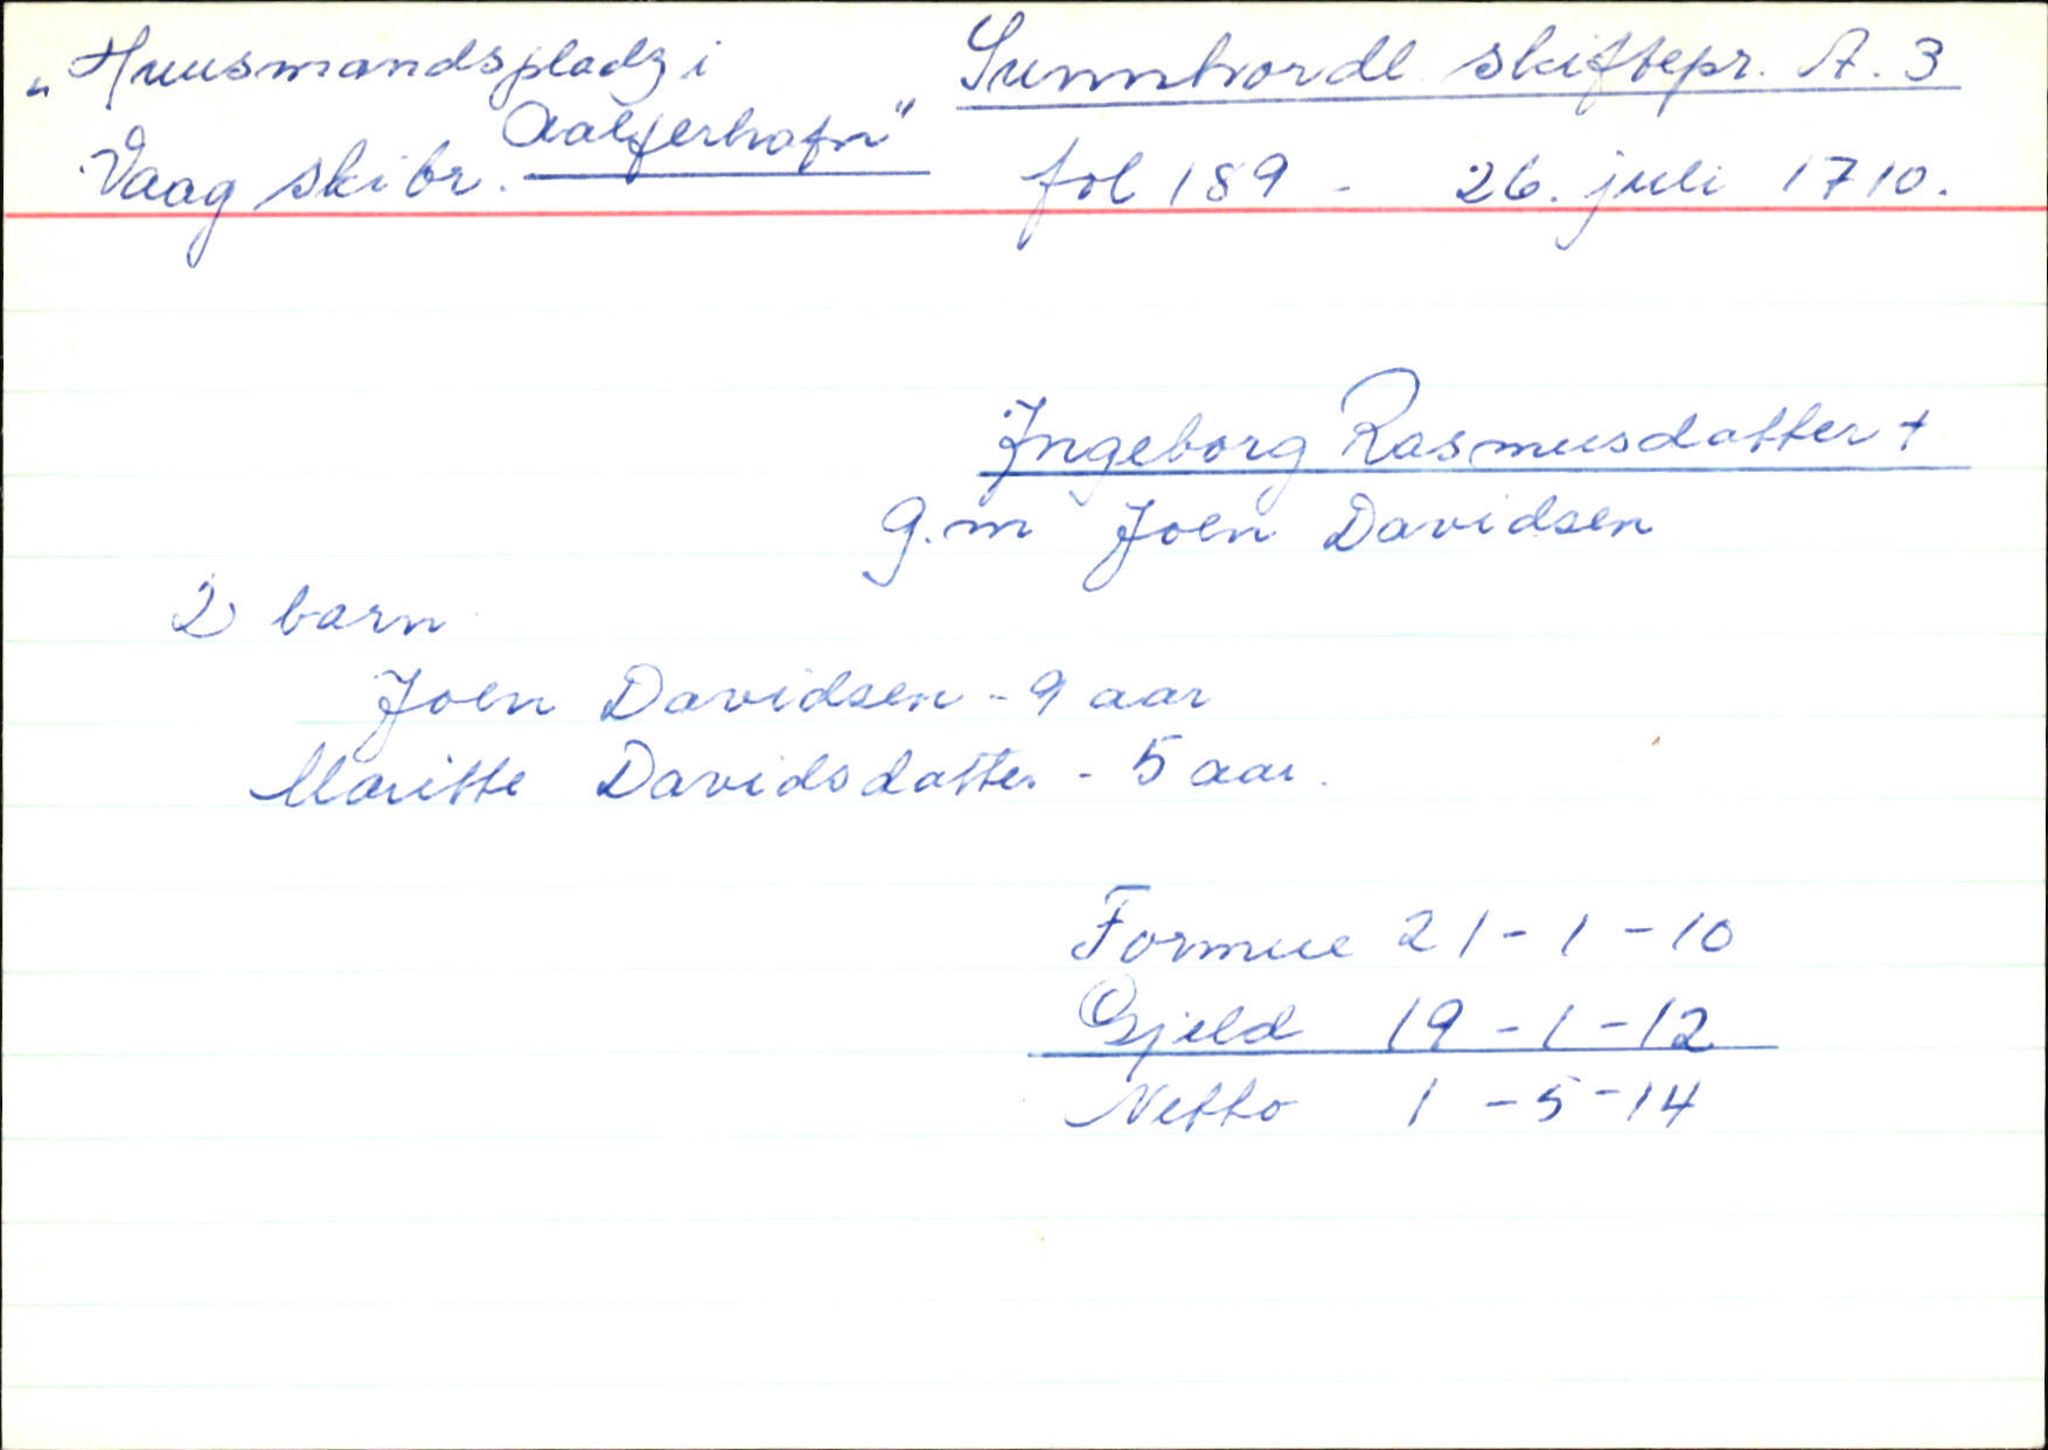 „Huusmandspladz i
Aalferhafn"
Vaag skibr.
Sunnhordl. skiftepr. A. 3
fol 189 - 26. juli 1710.
Ingeborg Rasmusdatter +
g.m Joen Davidsen
2 barn
Joen Davidsen - 9 aar
Maritte Davidsdatter - 5 aar.
Formue 21 - 1 - 10
Gjeld 19 - 1 - 12
Netto 1 - 5 - 14